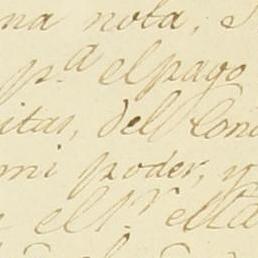 na nota,
p.ª el pago
itas, del Con
mi poder, y
el